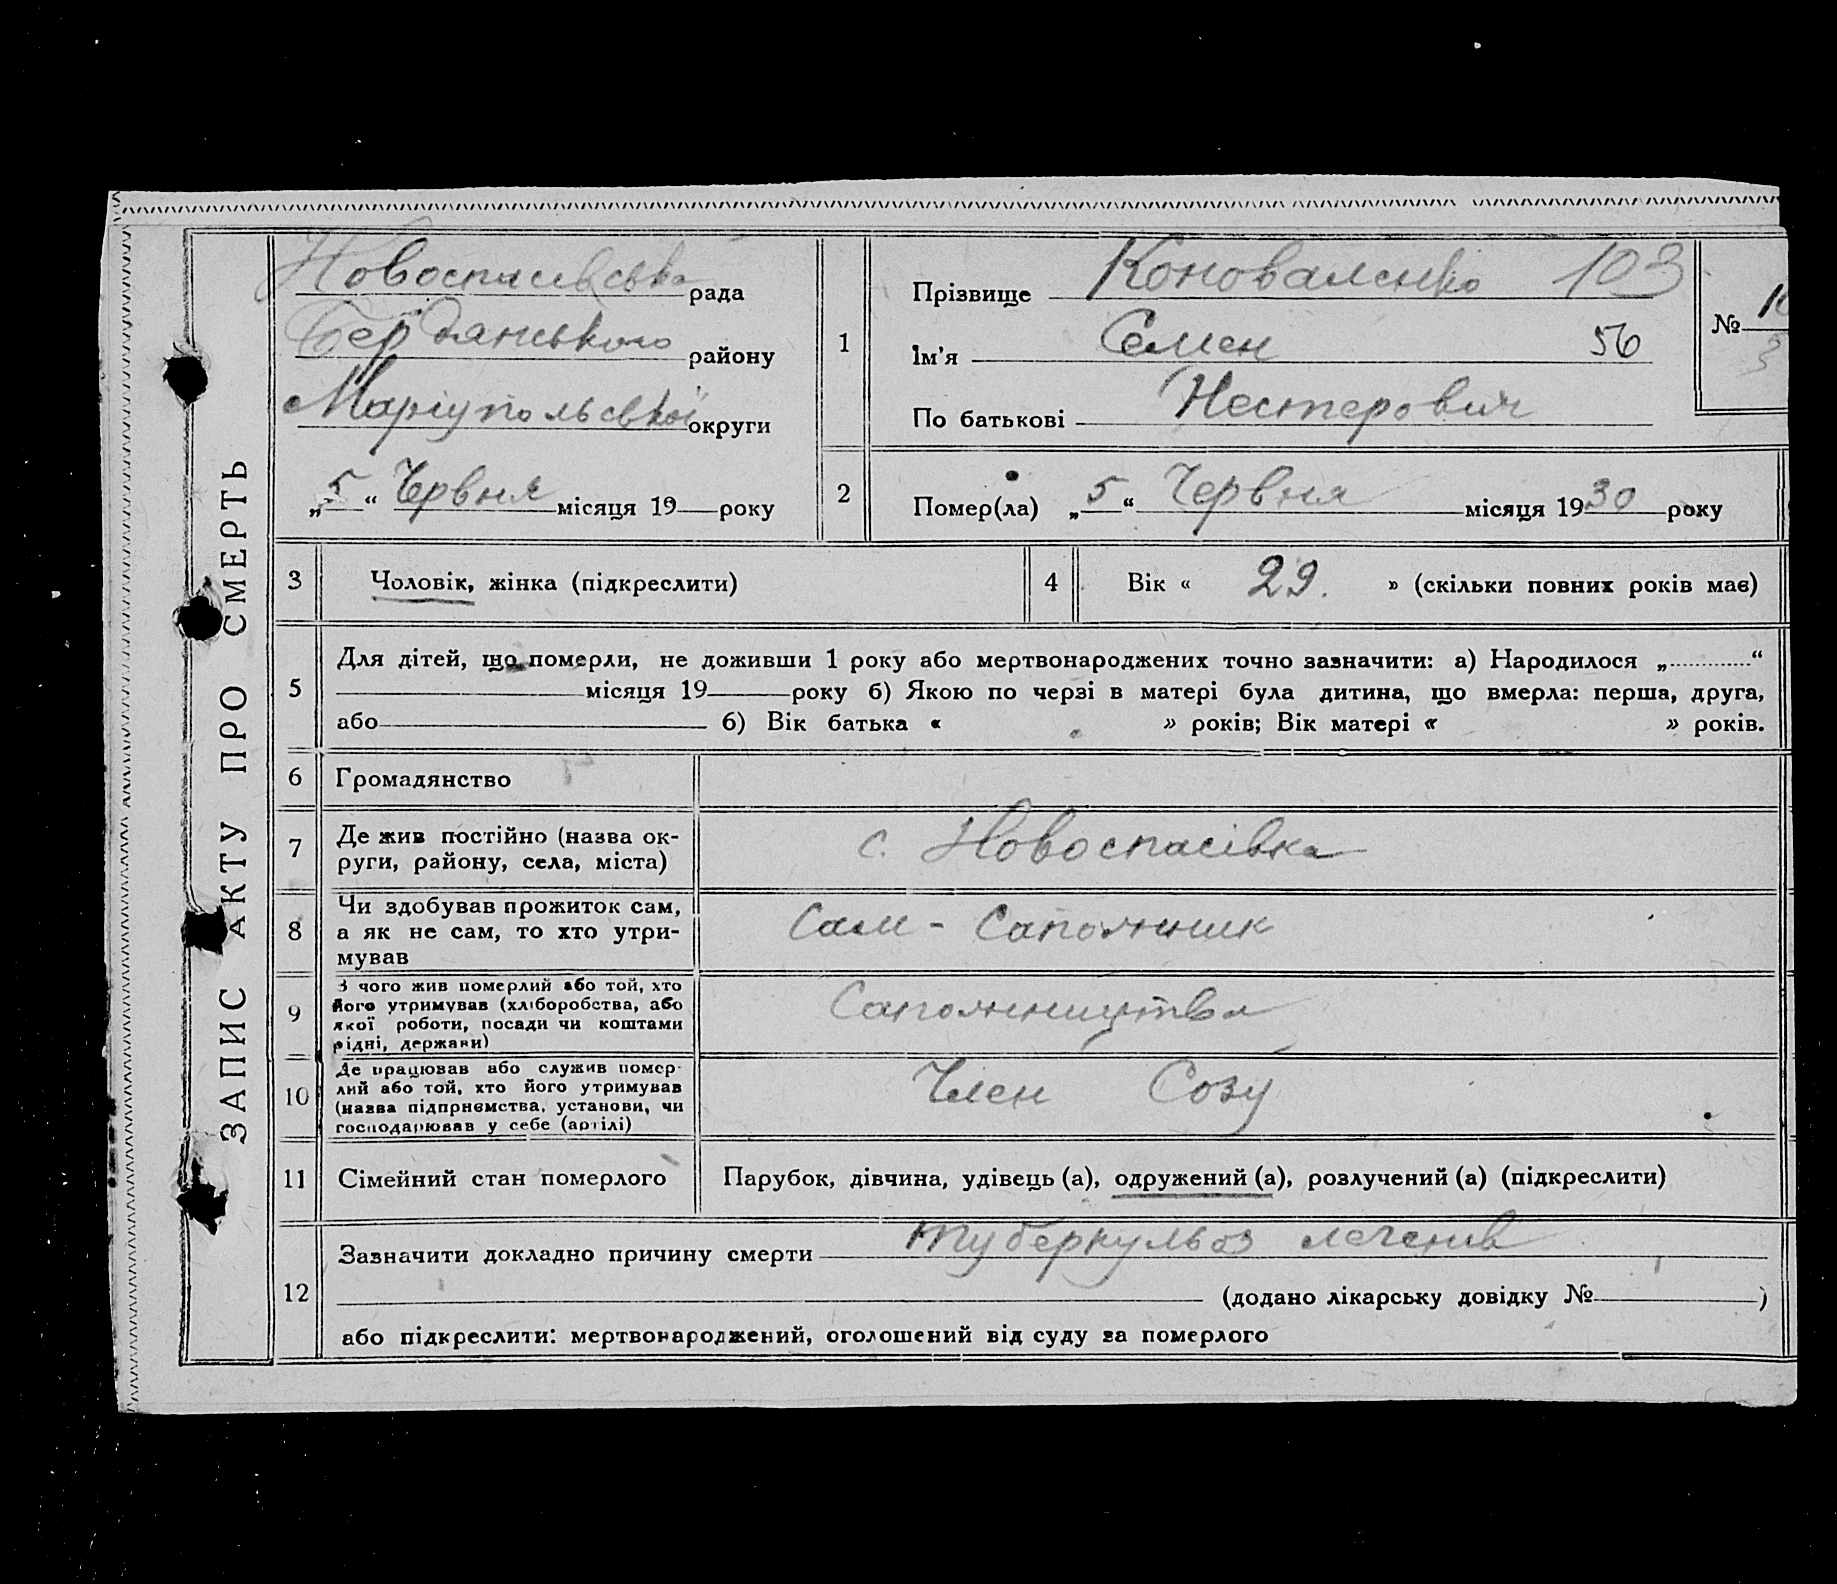 ЗАПИС АКТУ ПРО СМЕРТЬ
Новоспасівська рада
Бердянського району
Маріупольської округи
„5“ Червня місяця 19 року
1
Прізвище Коноваленко 103
Ім'я Семен 56
По батькові Нестерович
№
2
Помер(ла) „5“ Червня місяця 1930 року
3 Чоловік, жінка (підкреслити)
4 Вік « 29. » (скільки повних років має)
5
Для дітей, що померли, не доживши 1 року або мертвонароджених точно зазначити: а) Народилося „ “
місяця 19 року б) Якою по черзі в матері була дитина, що вмерла: перша, друга,
або б) Вік батька « » років; Вік матері « » років.
6 Громадянство
7 Де жив постійно (назва ок-
руги, району, села, міста)
с. Новоспасівка
8 Чи здобував прожиток сам,
а як не сам, то хто утри-
мував
Сам - Сапожник
9 З чого жив померлий або той, хто
його утримував (хліборобства, або
якої роботи, посади чи коштами
рідні, держави)
Сапожництва
10 Де працював або служив помер-
лий або той, хто його утримував
(назва підприємства, установи, чи
господарював у себе (артілі)
Член Созу
11 Сімейний стан померлого
Парубок, дівчина, удівець (а), одружений (а), розлучений (а) (підкреслити)
12
Зазначити докладно причину смерти туберкульоз легенів
(додано лікарську довідку № )
або підкреслити: мертвонароджений, оголошений від суду за померлого